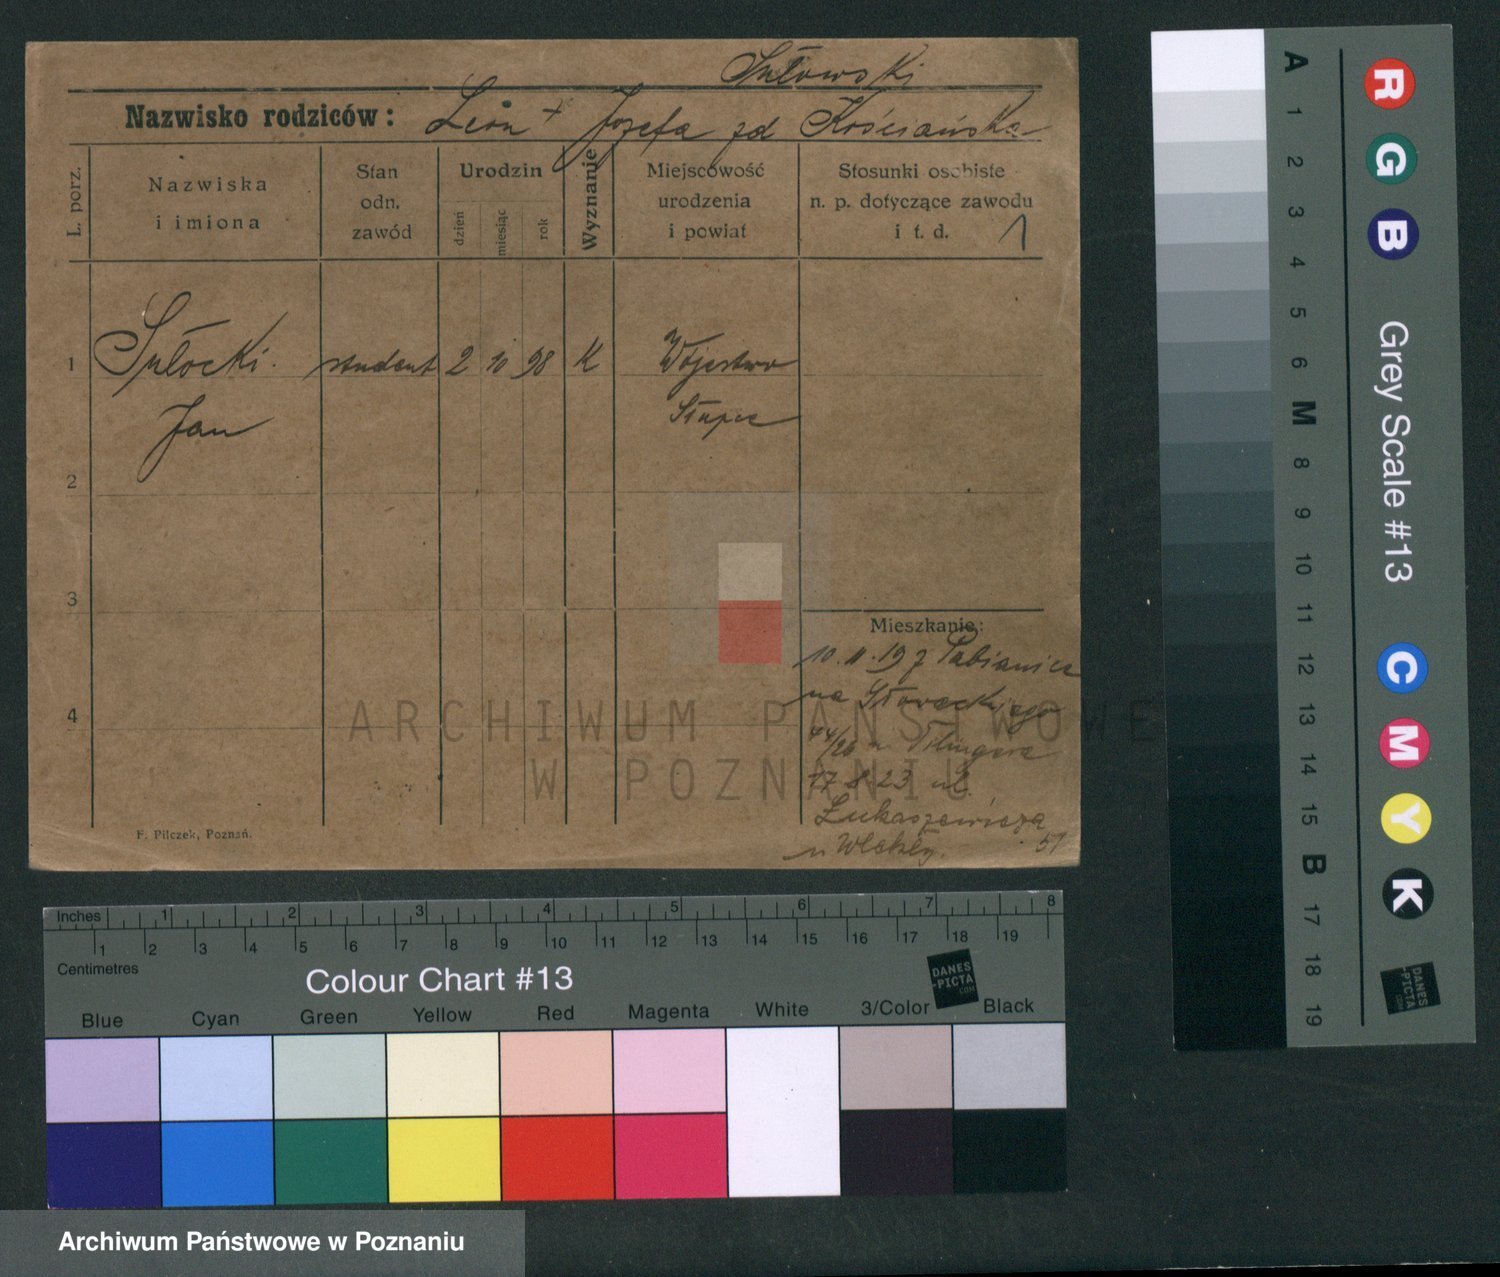 Nazwisko rodziców: Leon + Józefa zd Kościańska
L. porz.
Nazwiska
i imiona
Stan
odn.
zawód
Urodzin
dzień
miesiąc
rok
Wyznanie
Miejscowość
urodzenia
i powiat
Stosunki osobiste
n. p. dotyczące zawodu
i t. d. 1
1 student 2 10 98 K
Jan Słupca
2
3
4
Mieszkanie:
10.11.19 z Pabianic
na
17.8.23 ul.
Łukaszewicza
51
F. Pilczek, Poznań.
ARCHIWUM PAŃSTWOWE
W POZNANIU
Inches 1 2 3 4 5 6 7 8
1 2 3 4 5 6 7 8 9 10 11 12 13 14 15 16 17 18 19
Centimetres
Colour Chart #13
DANES
-PICTA
.COM
Blue Cyan Green Yellow Red Magenta White 3/Color Black
A 1 2 3 4 5 6 M 8 9 10 11 12 13 14 15 B 17 18 19
R G B
Grey Scale #13
C M Y K
DANES
-PICTA
.COM
Archiwum Państwowe w Poznaniu